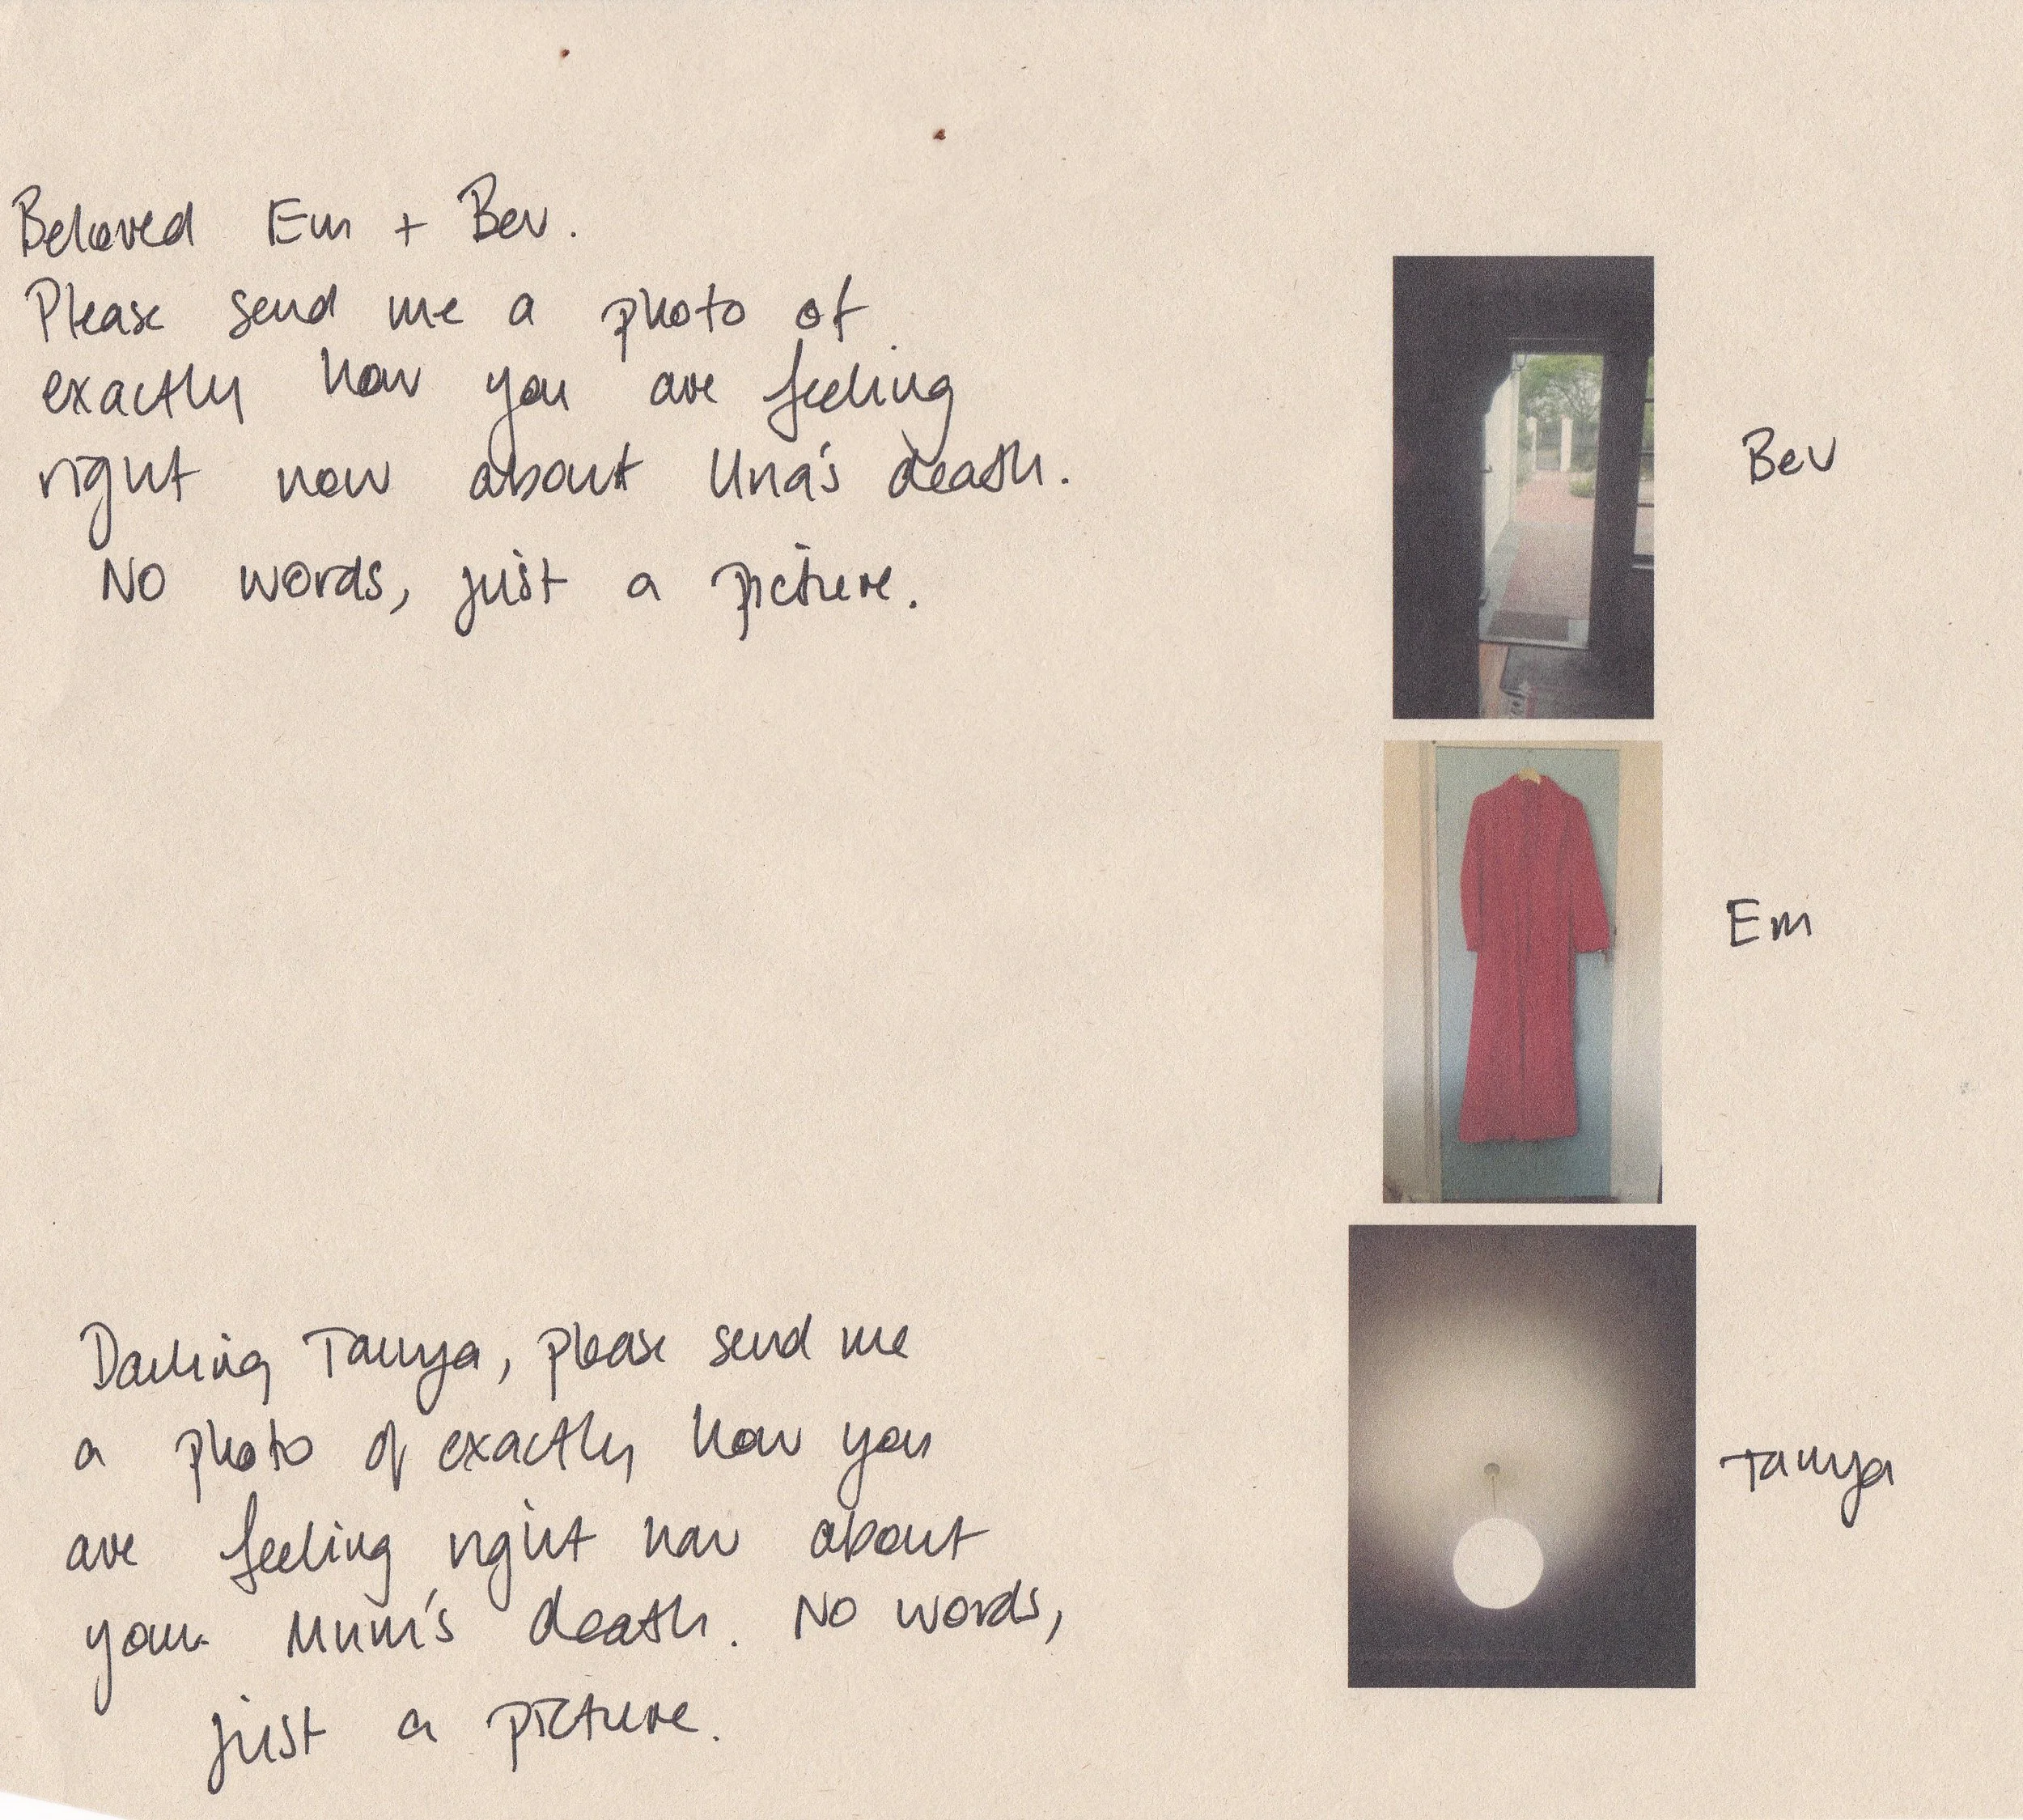 Beloved Em + Bev.
Please send me a photo of
exactly how you are feeling
right now about Una's death.
No words, just a picture.
Bev
Em
Darling Tanya, please send me
a photo of exactly how you
are feeling right now about
your Mum's death. No words,
just a picture.
Tanya